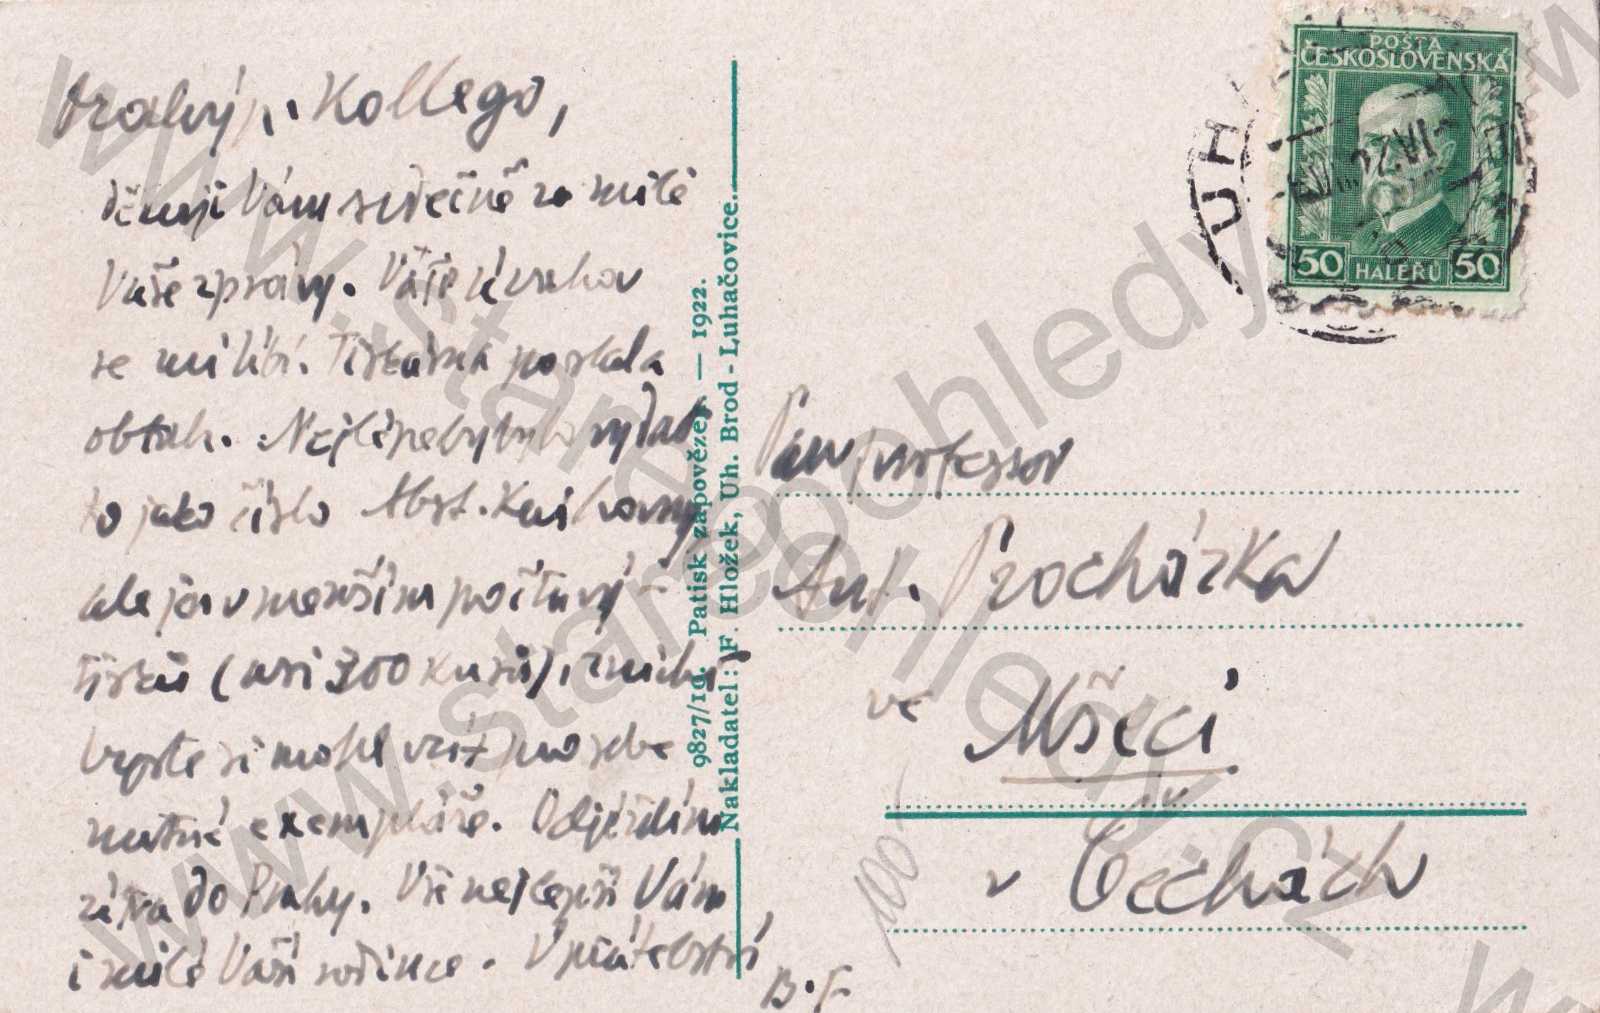 Drahý p. Kollego,
děkuji Vám srdečně za milé
Vaše zprávy. Vaše
se mi líbí. Tiskárna poslala
obtah. Nejlépe by bylo vydat
to jako číslo Abst. Knihovny
ale jen v menším počtu vý-
tisků (asi 300 kusů), z nichž
byste si mohl vzít pro sebe
nutné exempláře. Odjíždím
zítra do Prahy. Vše nejlepší Vám
i milé Vaší rodince. V přátelství
B.F.
9827/19. Patisk zapovězen. — 1922.
Nakladatel: F. Hložek, Uh. Brod - Luhačovice.
POŠTA
ČESKOSLOVENSKÁ
50 HALEŘŮ 50
UH
Pan professor
Ant. Procházka
ve Mšeci
v Čechách
100
www.starepohledy.cz